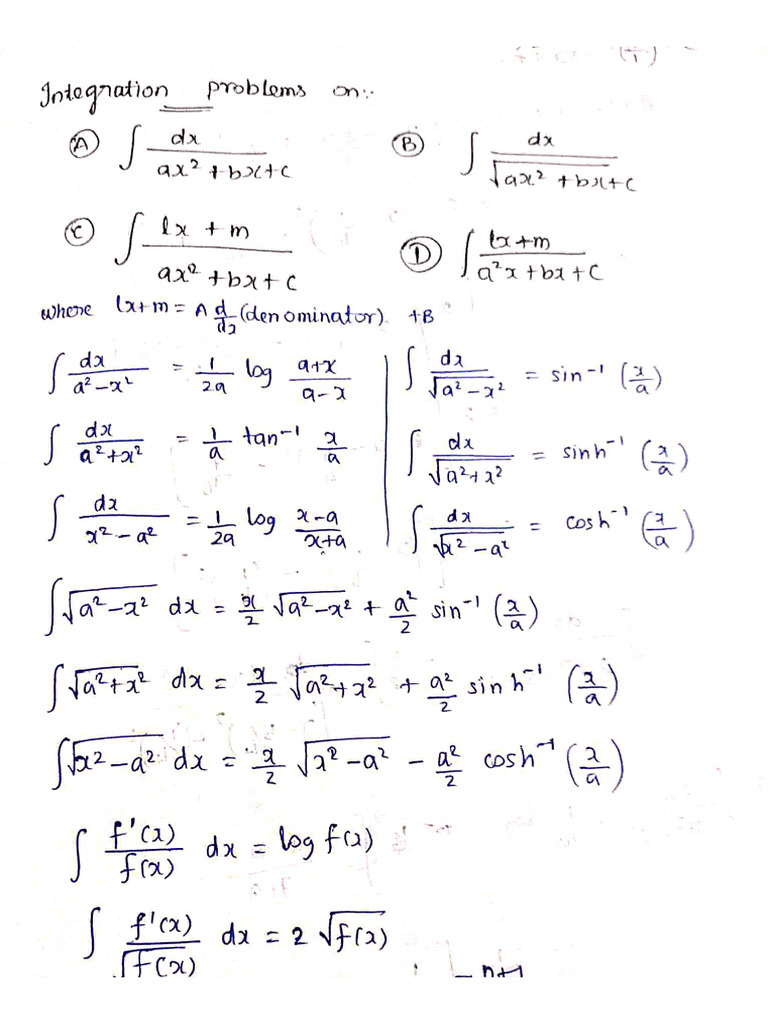 Integration problems on:-
(A) ∫ dx / (ax² + bx + c) (B) ∫ dx / √(ax² + bx + c)
(C) ∫ (lx + m) / (ax² + bx + c) (D) ∫ (lx + m) / (a²x + bx + c)
where lx + m = A d/dx (denominator) + B
∫ dx / (a² - x²) = 1/2a log (a+x)/(a-x) | ∫ dx / √(a² - x²) = sin⁻¹ (x/a)
∫ dx / (a² + x²) = 1/a tan⁻¹ x/a | ∫ dx / √(a² + x²) = sinh⁻¹ (x/a)
∫ dx / (x² - a²) = 1/2a log (x-a)/(x+a) | ∫ dx / √(x² - a²) = cosh⁻¹ (x/a)
∫ √(a² - x²) dx = x/2 √(a² - x²) + a²/2 sin⁻¹ (x/a)
∫ √(a² + x²) dx = x/2 √(a² + x²) + a²/2 sinh⁻¹ (x/a)
∫ √(x² - a²) dx = x/2 √(x² - a²) - a²/2 cosh⁻¹ (x/a)
∫ f'(x) / f(x) dx = log f(x)
∫ f'(x) / √f(x) dx = 2 √f(x)
n+1